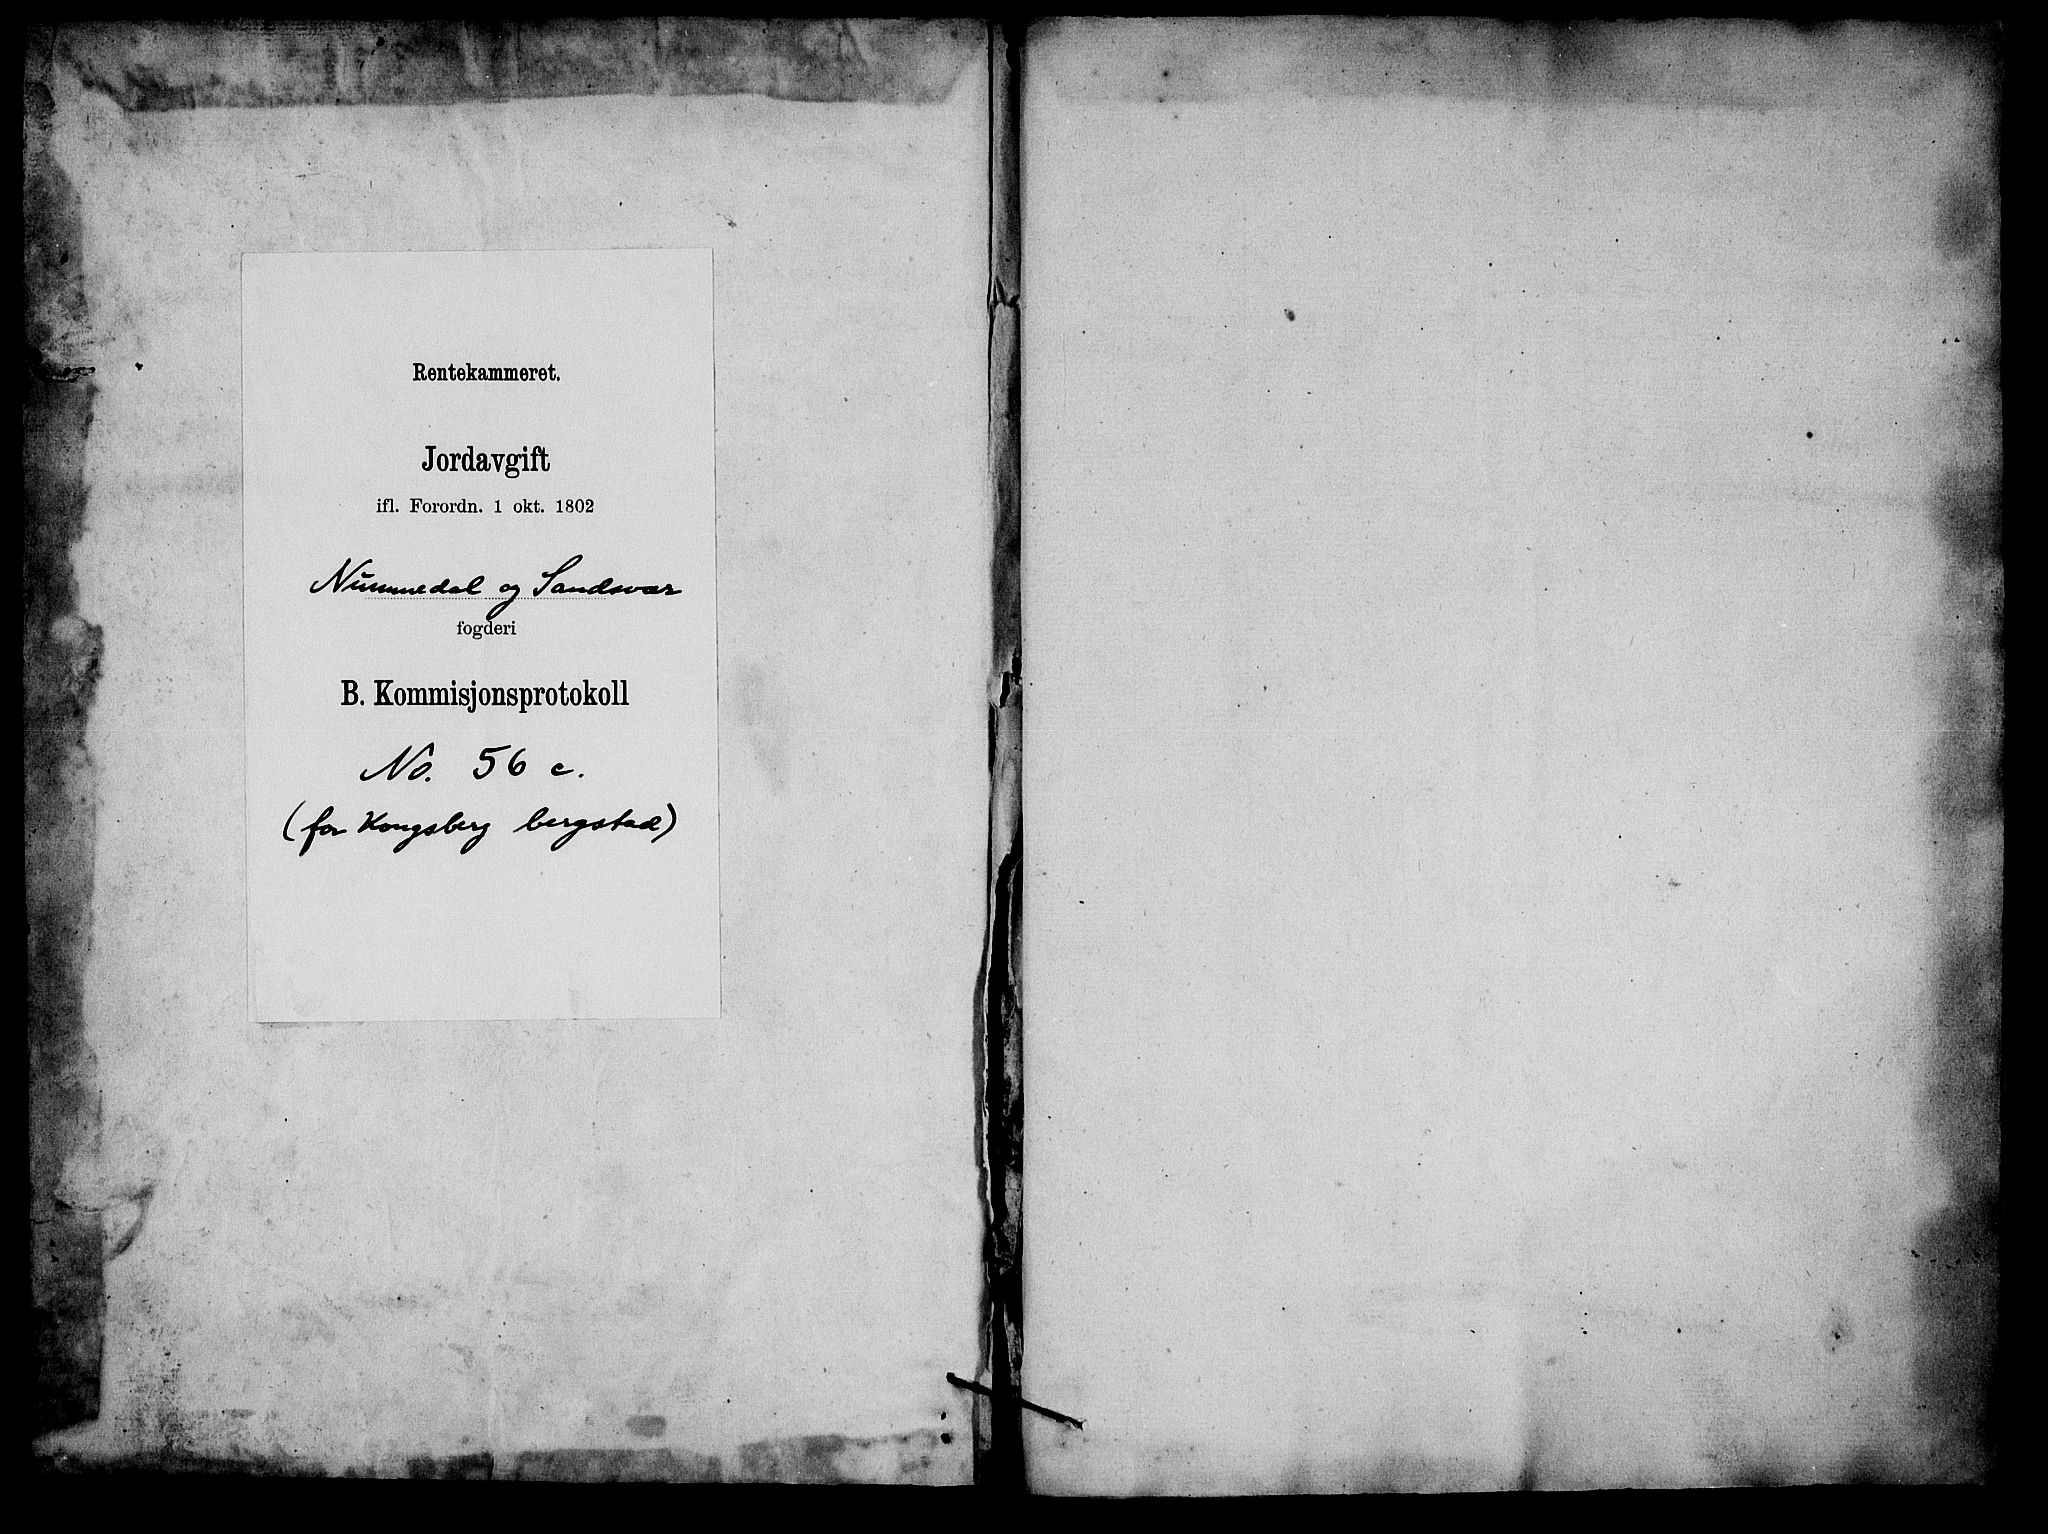 Rentekammeret.
Jordavgift
ifl. Forordn. 1 okt. 1802
Nummedal og Sandsvær
fogderi
B. Kommisjonsprotokoll
No. 56 c.
(for Kongsberg bergstad)